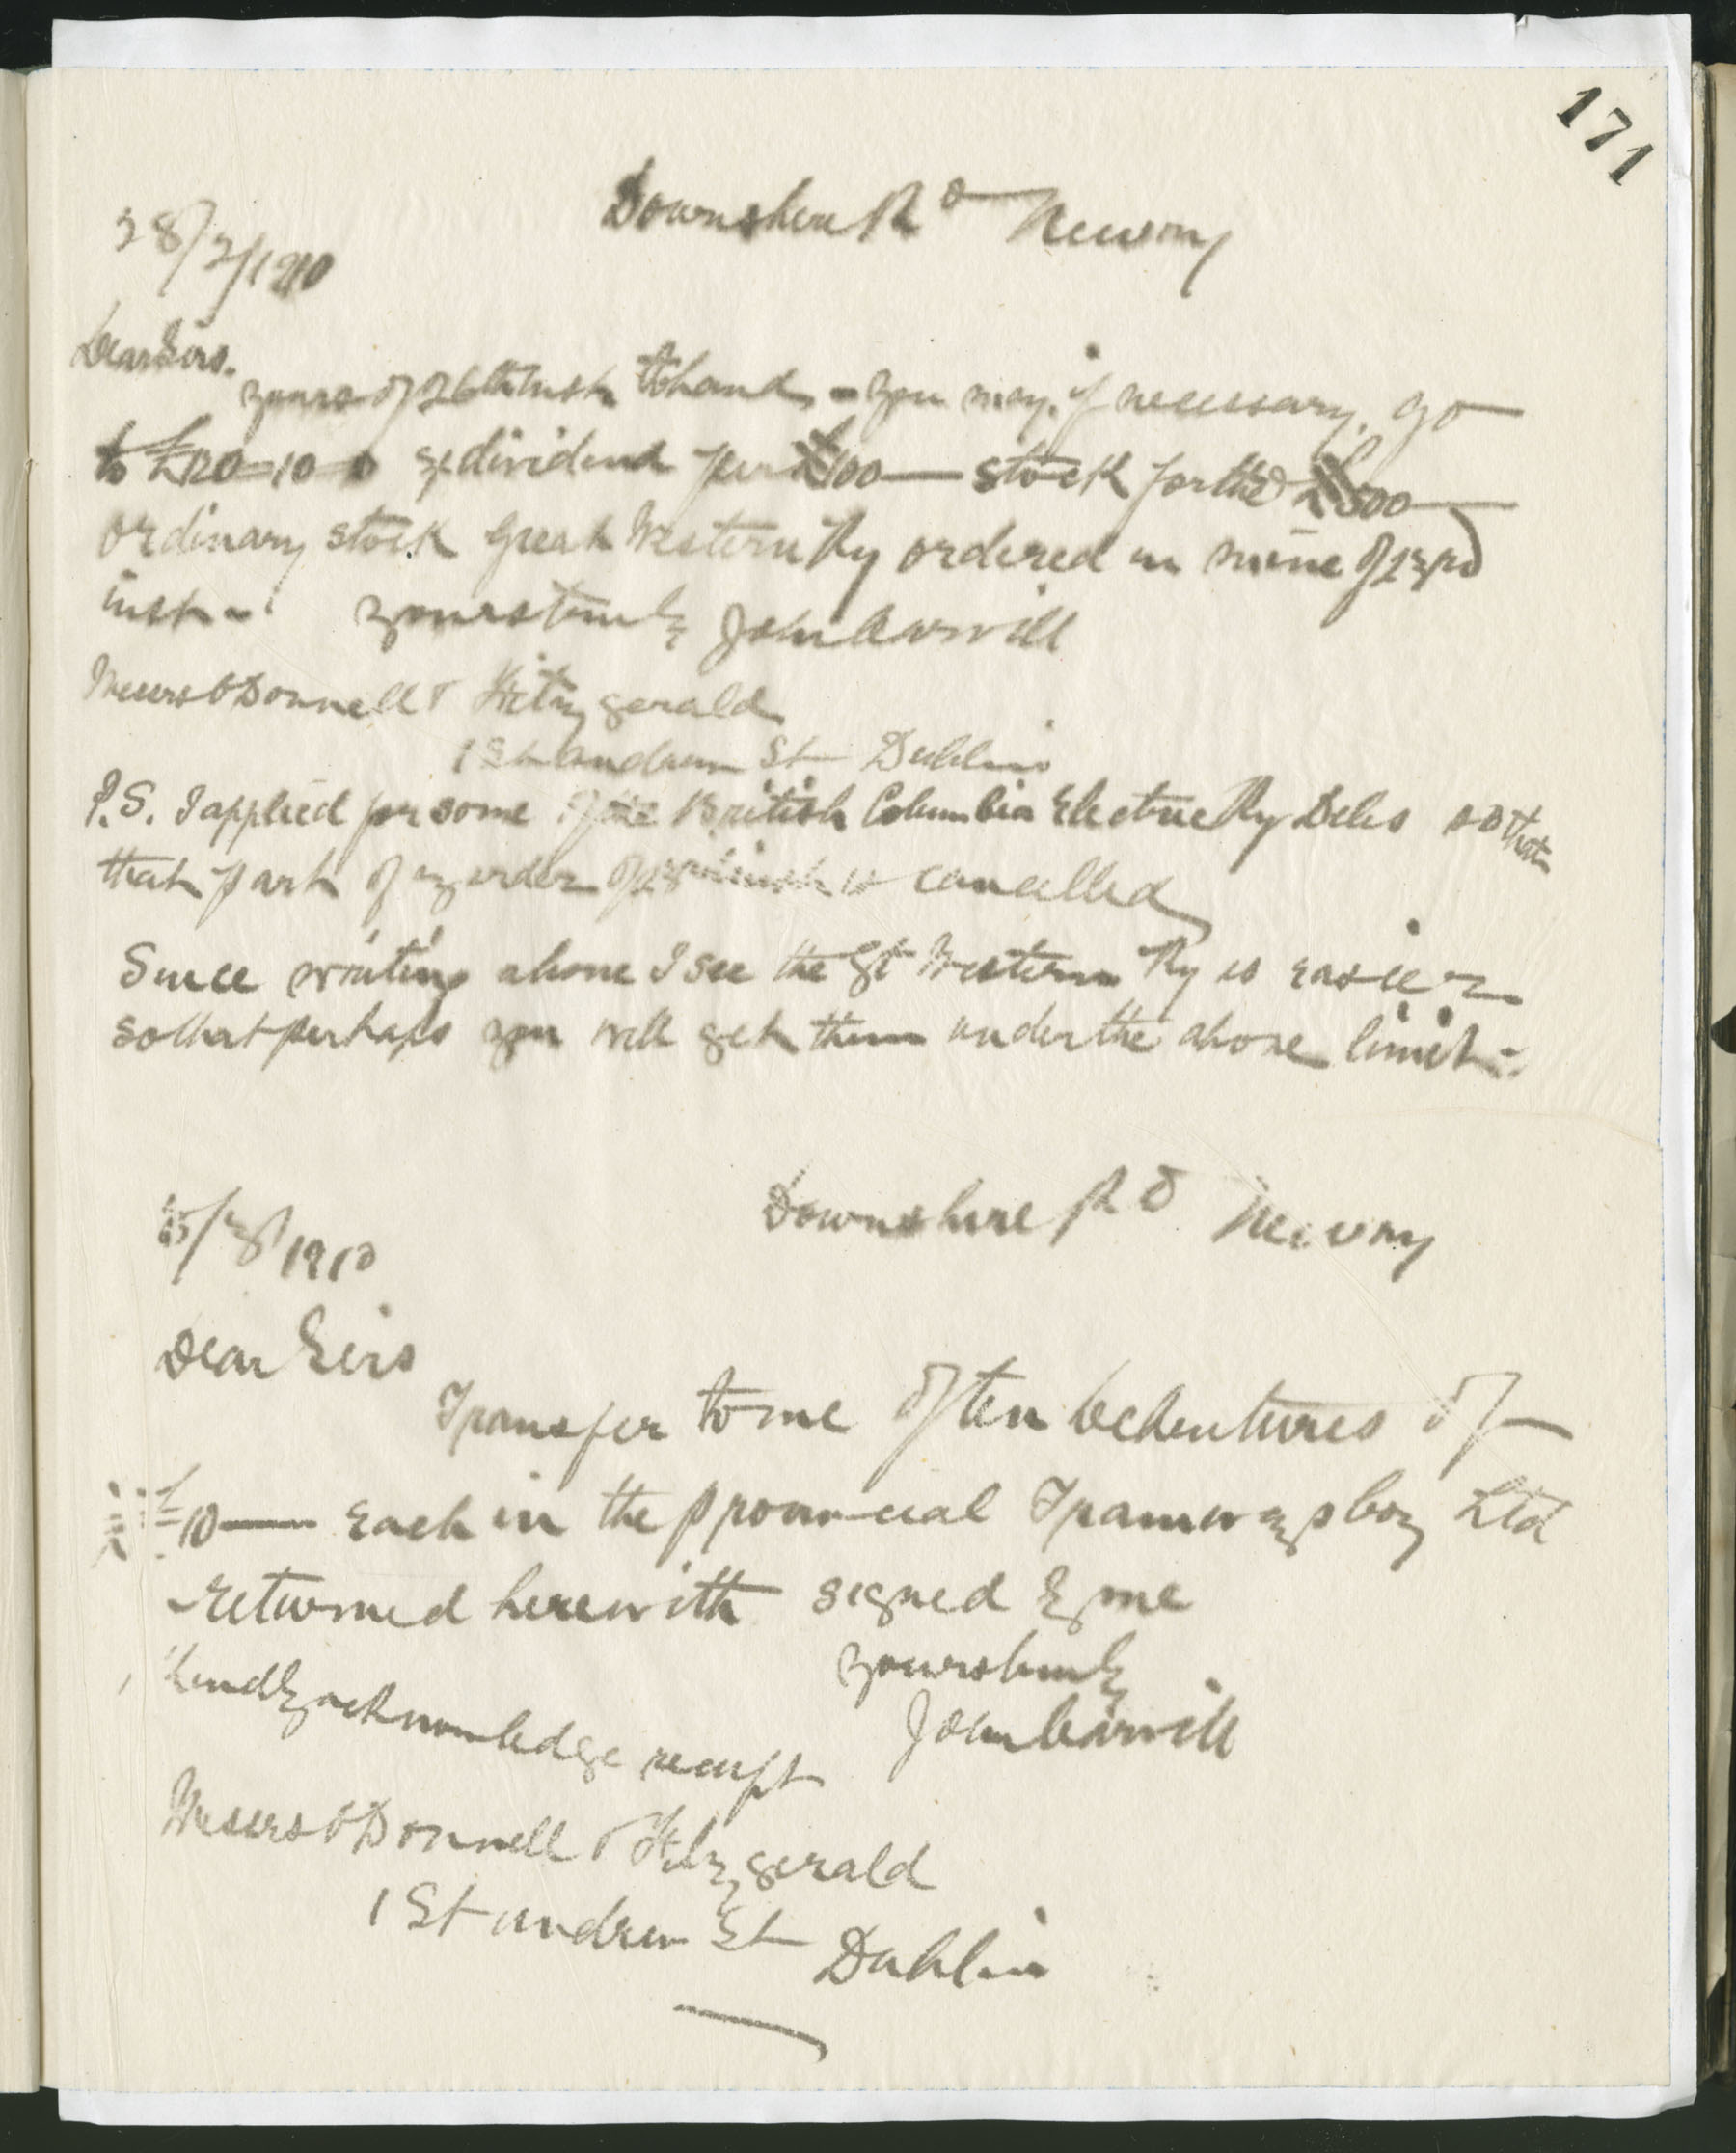 171
Downshire Rd Newry
28/2/1910
Dear Sirs.
yours of 26th inst to hand - you may, if necessary, go
to £120=10=0 ex dividend per £100 — stock for the £500
ordinary stock Great Western Ry ordered in mine of 23rd
inst - yours truly John Carvill
Messrs O'Donnell & Fitzgerald
1 St Andrew St Dublin
P.S. I applied for some of the British Columbia Electric Ry Debs so that
that part of my order of inst is cancelled
Since writing above I see the Gt Western Ry is easier
so that perhaps you will get them under the above limit -
5/3/1910
Downshire Rd Newry
Dear Sirs
Transfer to me of ten debentures of
£10 — each in the Provincial Tramways Coy Ltd
returned herewith signed by me
yours truly
Kindly acknowledge receipt
John Carvill
Messrs O'Donnell & Fitzgerald
1 St Andrew St Dublin